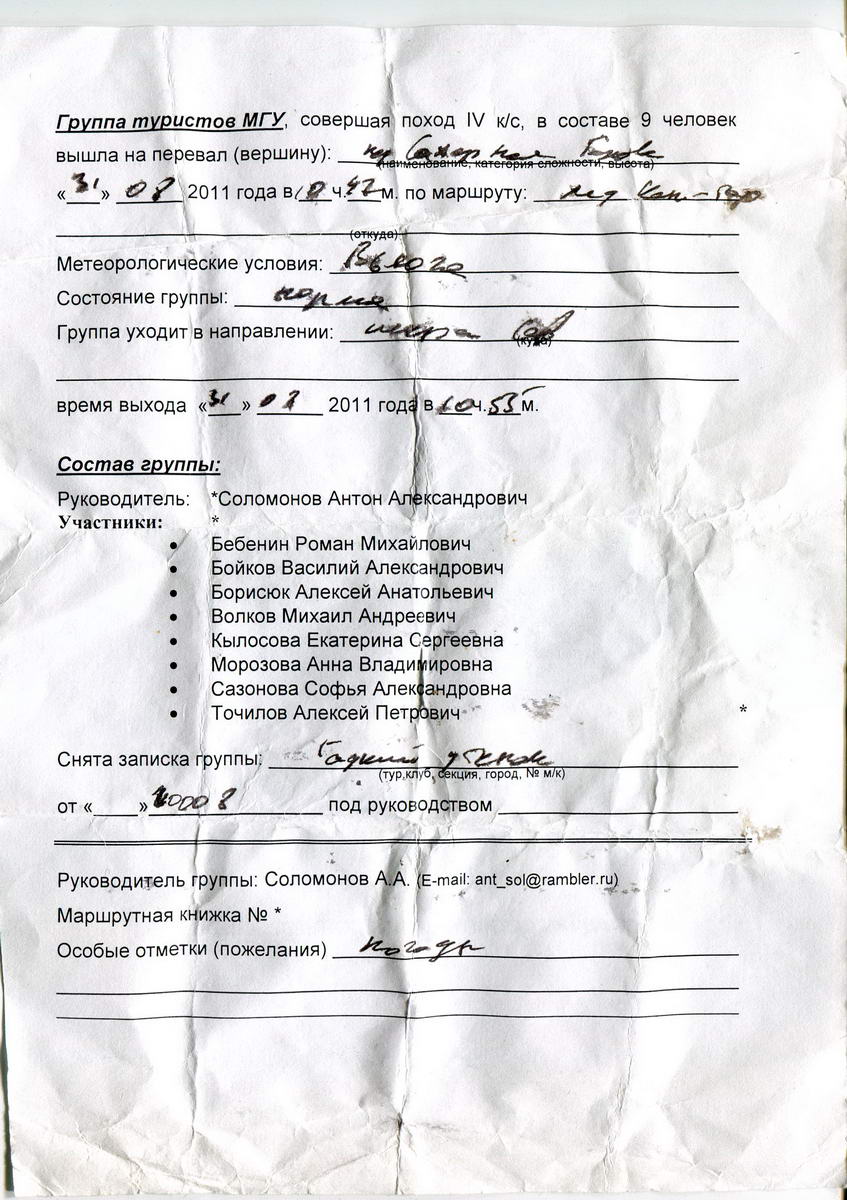 Группа туристов МГУ, совершая поход IV к/с, в составе 9 человек
вышла на перевал (вершину):
(наименование, категория сложности, высота)
«31» 08 2011 года в 10 ч. 42 м. по маршруту:
(откуда)
Метеорологические условия: Вьюга
Состояние группы: норма
Группа уходит в направлении:
(куда)
время выхода «31» 08 2011 года в 10 ч. 55 м.
Состав группы:
Руководитель: *Соломонов Антон Александрович
Участники: *
• Бебенин Роман Михайлович
• Бойков Василий Александрович
• Борисюк Алексей Анатольевич
• Волков Михаил Андреевич
• Кылосова Екатерина Сергеевна
• Морозова Анна Владимировна
• Сазонова Софья Александровна
• Точилов Алексей Петрович *
Снята записка группы: Гадкий утенок
(тур.клуб, секция, город, № м/к)
от «____» под руководством
Руководитель группы: Соломонов А.А. (E-mail: ant_sol@rambler.ru)
Маршрутная книжка № *
Особые отметки (пожелания) погоды